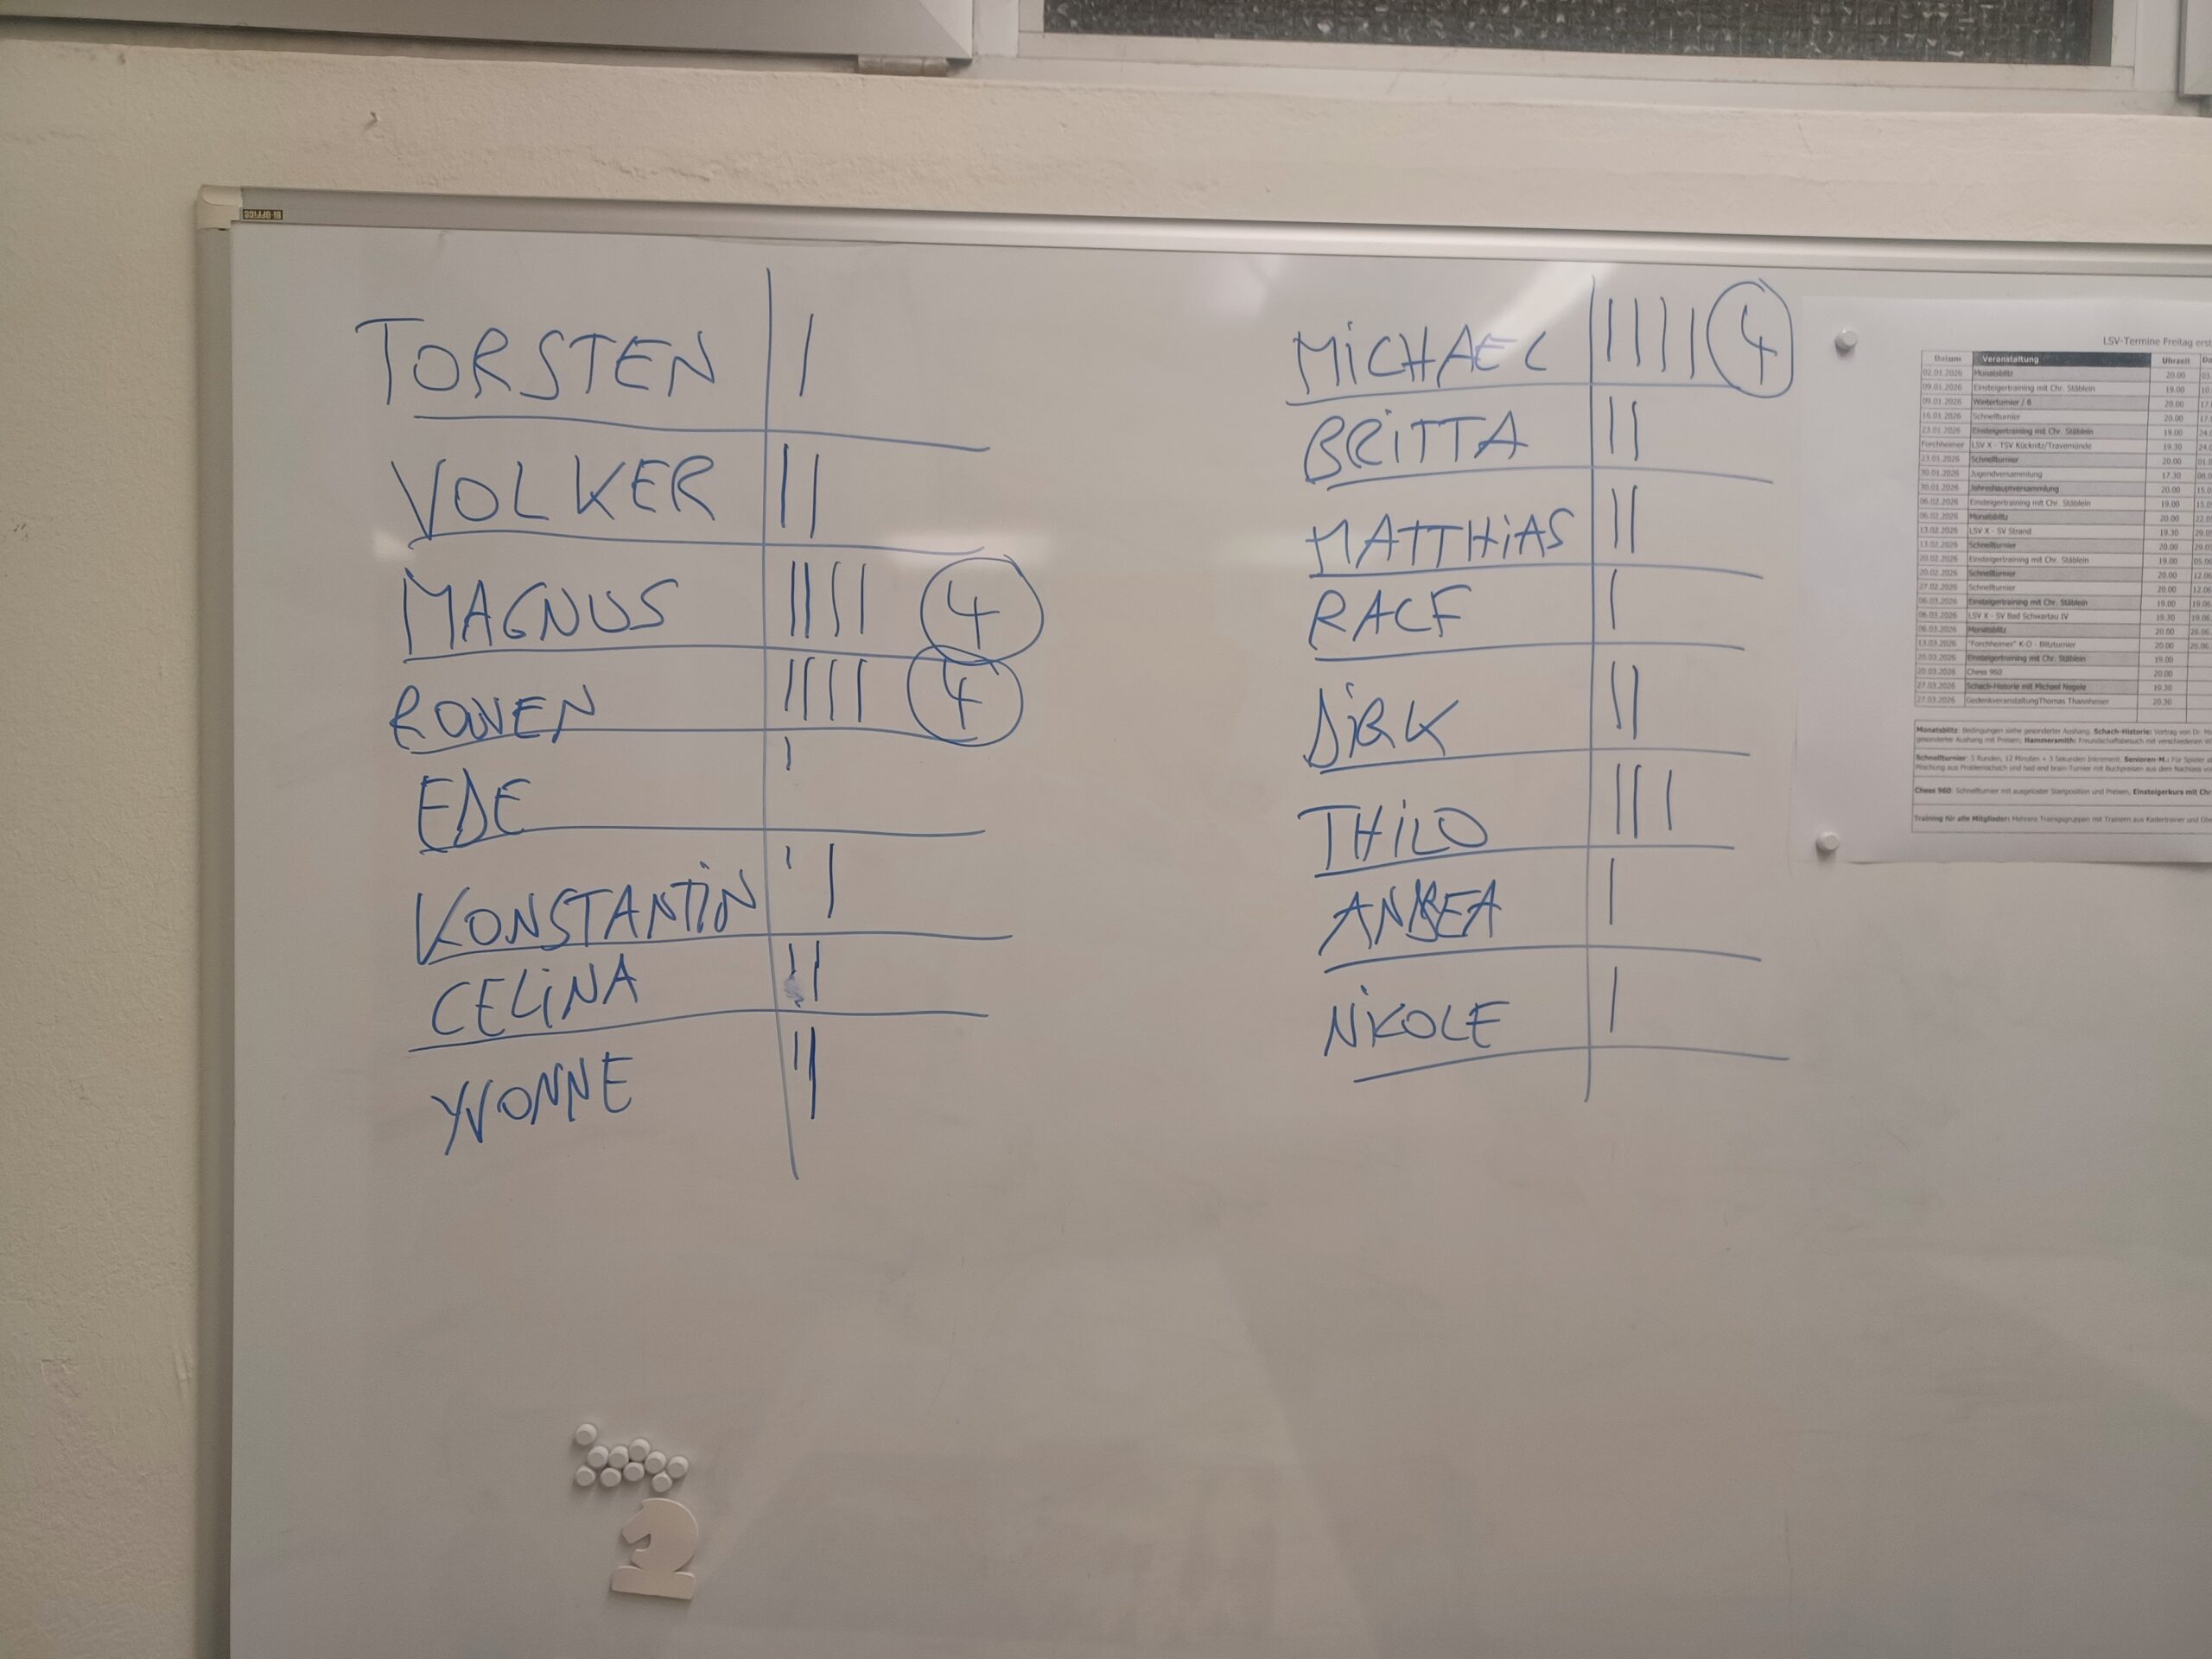 BI-OFFICE
TORSTEN |
VOLKER ||
MAGNUS |||| 4
ROWEN |||| 4
EDE |
KONSTANTIN ||
CELINA ||
YVONNE ||
MICHAEL |||| 4
BRITTA ||
MATTHIAS ||
RALF |
DIRK ||
THILO |||
ANDEA |
NIKOLE |
LSV-Termine Freitag
Datum Veranstaltung Uhrzeit
02.01.2026 Monatsblitz 20.00
09.01.2026 Einsteigertraining mit Chr. Stäblein 19.00
09.01.2026 20.00
16.01.2026 Schnellturnier 20.00
23.01.2026 Einsteigertraining mit Chr. Stäblein 19.00
Forchheimer LSV X - TSV Kücknitz/Travemünde 19.30
23.01.2026 Schnellturnier 20.00
30.01.2026 Jugendversammlung 17.30
30.01.2026 Jahreshauptversammlung 20.00
06.02.2026 Einsteigertraining mit Chr. Stäblein 19.00
06.02.2026 Monatsblitz 20.00
13.02.2026 LSV X - SV Strand 19.30
13.02.2026 Schnellturnier 20.00
20.02.2026 Einsteigertraining mit Chr. Stäblein 19.00
20.02.2026 Schnellturnier 20.00
27.02.2026 Schnellturnier 20.00
06.03.2026 Einsteigertraining mit Chr. Stäblein 19.00
06.03.2026 LSV X - SV Bad Schwartau IV 19.30
06.03.2026 Monatsblitz 20.00
13.03.2026 "Forchheimer" K-O - Blitzturnier 20.00
20.03.2026 Einsteigertraining mit Chr. Stäblein 19.00
20.03.2026 Chess 960 20.00
27.03.2026 Schach-Historie mit Michael Negele 19.30
27.03.2026 Gedenkveranstaltung Thomas Thannheiser 20.30
Monatsblitz: Bedingungen siehe gesonderter Aushang. Schach-Historie: Vortrag von Dr.
gesonderter Aushang mit Preisen, Hammersmith: Freundschaftsbesuch mit
Schnellturnier: 5 Runden, 12 Minuten + 3 Sekunden Inkrement. Senioren-M.: Für Spieler
Chess 960: Schnellturnier mit ausgeloster Startposition und Preisen, Einsteigerkurs mit Chr
Training für alle Mitglieder: Mehrere Trainingsgruppen mit Trainern aus Kadertrainer und